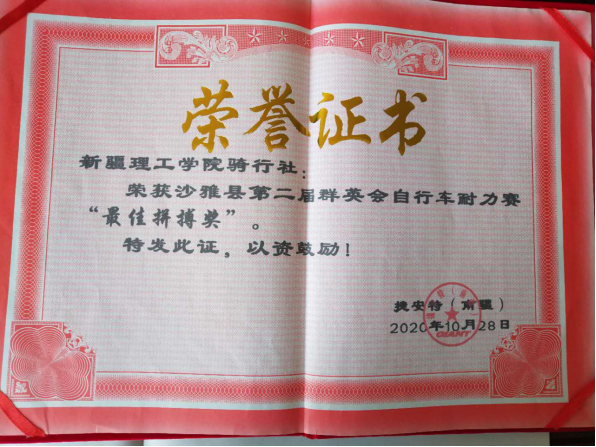 荣誉证书
新疆理工学院骑行社：
荣获沙雅县第二届群英会自行车耐力赛
“最佳拼搏奖”。
特发此证，以资鼓励！
捷安特（南疆）
2020年10月28日
GIANT